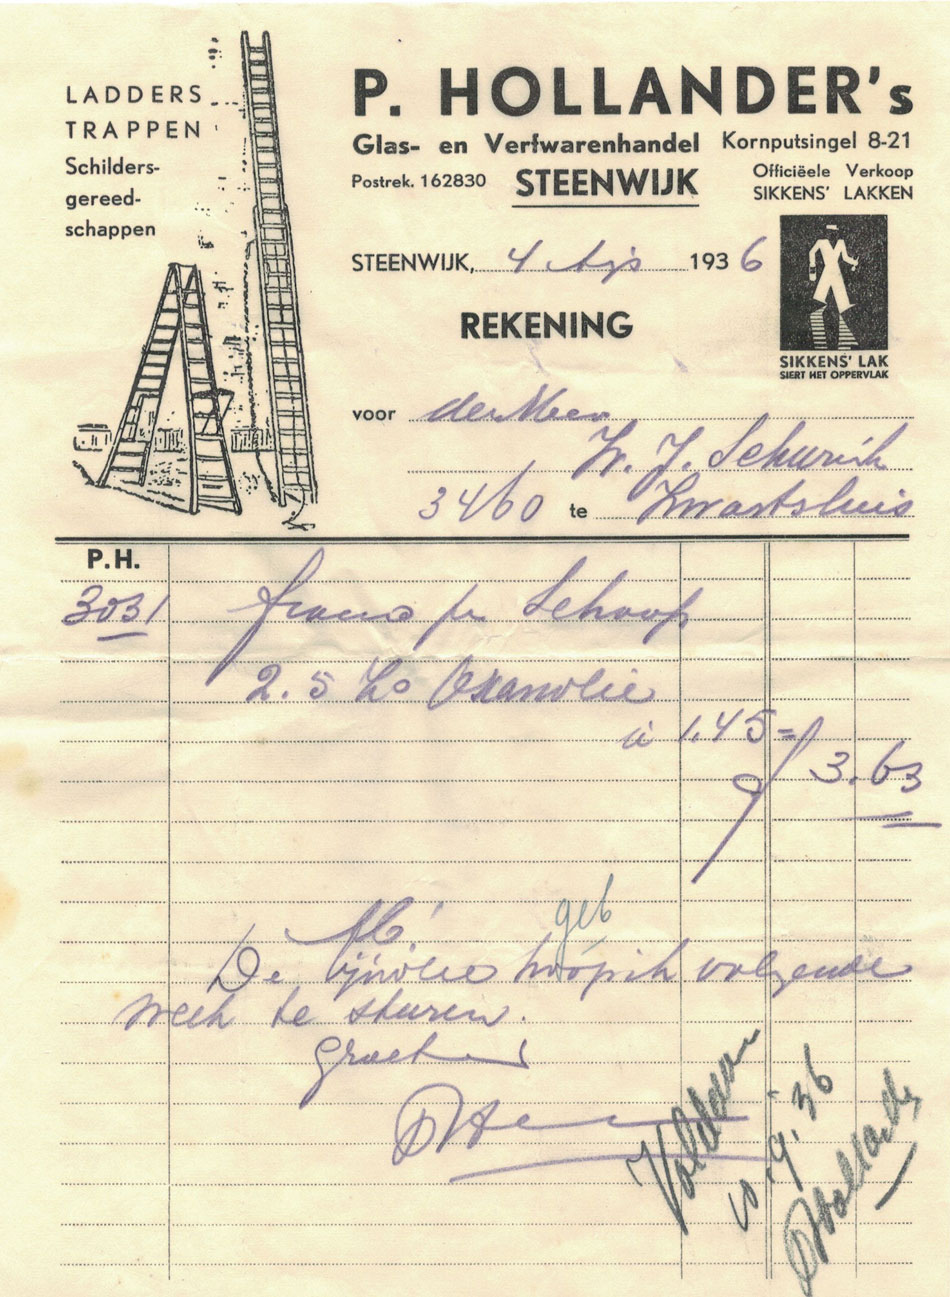 LADDERS
TRAPPEN
Schilders-
gereed-
schappen
P. HOLLANDER's
Glas- en Verfwarenhandel Kornputsingel 8-21
Postrek. 162830 STEENWIJK
Officiëele Verkoop
SIKKENS' LAKKEN
STEENWIJK, 4 1936
REKENING
SIKKENS' LAK
SIERT HET OPPERVLAK
voor
W. J. Schurink
3460 te Zwartsluis
P.H.
3031 franco pr Schoof
2.5
à 1.45 = f 3.63
geb
De lijnolie hoop ik volgende
week te sturen.
Groetend
Voldaan
10-9-36
PHollander